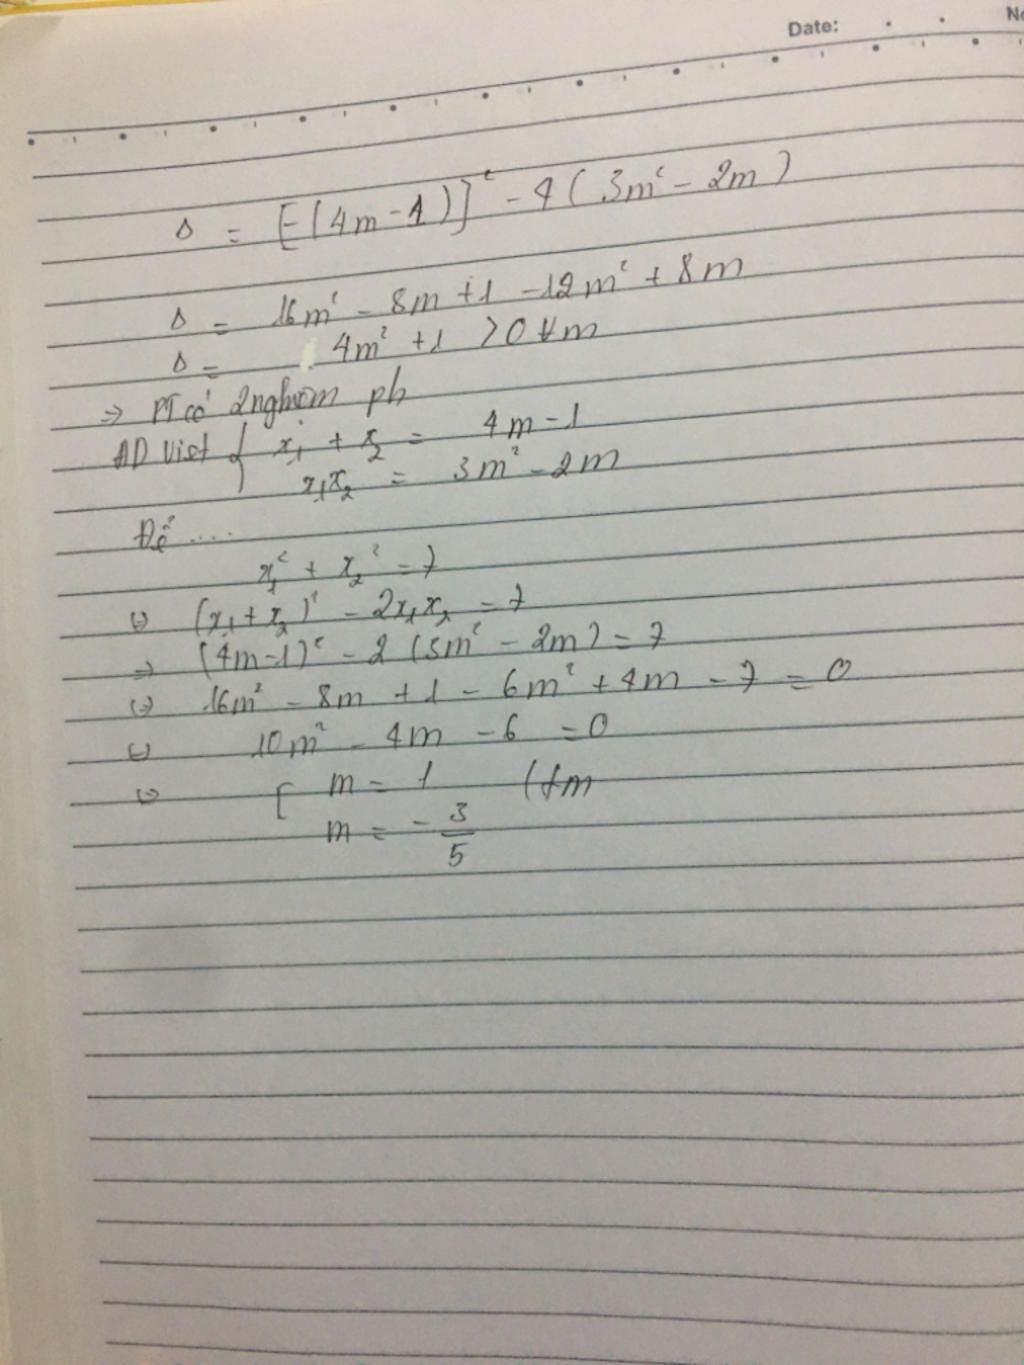 Date:
No
Δ = [-(4m-1)]² - 4(3m² - 2m)
Δ = 16m² - 8m + 1 - 12m² + 8m
Δ = 4m² + 1 > 0 ∀m
=> PT có 2 nghiệm pb
AD Viet { x₁ + x₂ = 4m - 1
x₁x₂ = 3m² - 2m
Để ....
x₁² + x₂² = 7
(=) (x₁ + x₂)² - 2x₁x₂ = 7
=> (4m-1)² - 2(3m² - 2m) = 7
(=) 16m² - 8m + 1 - 6m² + 4m - 7 = 0
(=) 10m² - 4m - 6 = 0
(=) [ m = 1
m = -3/5